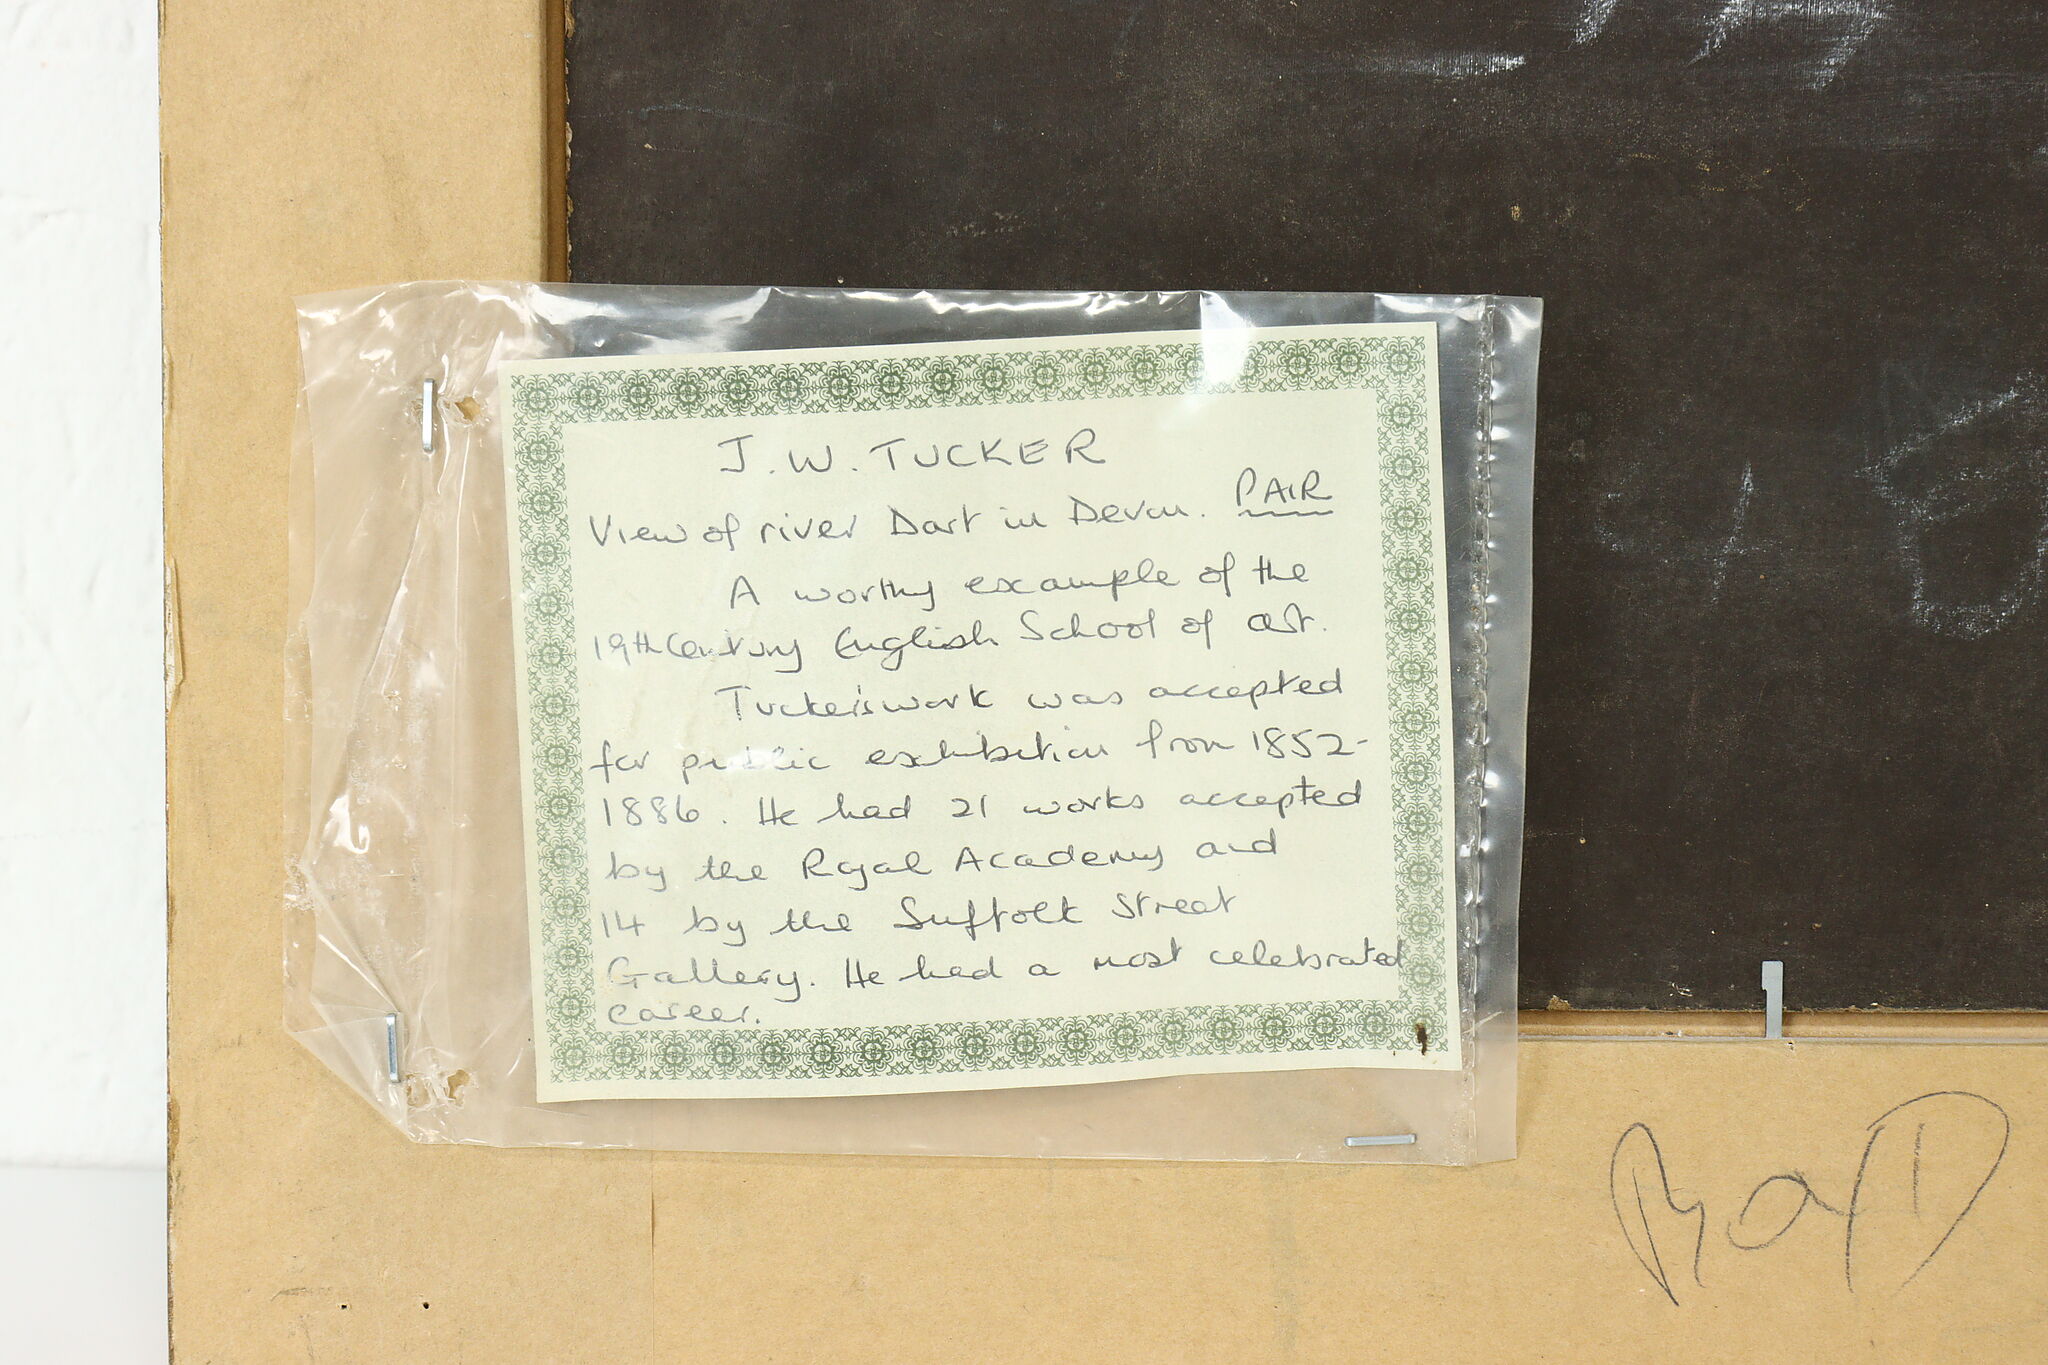 J. W. TUCKER
View of river Dart in Devon. PAIR
A worthy example of the
19th Century English School of art.
Tucker's work was accepted
for public exhibition from 1852-
1886. He had 21 works accepted
by the Royal Academy and
14 by the Suffolk Street
Gallery. He had a most celebrated
career.